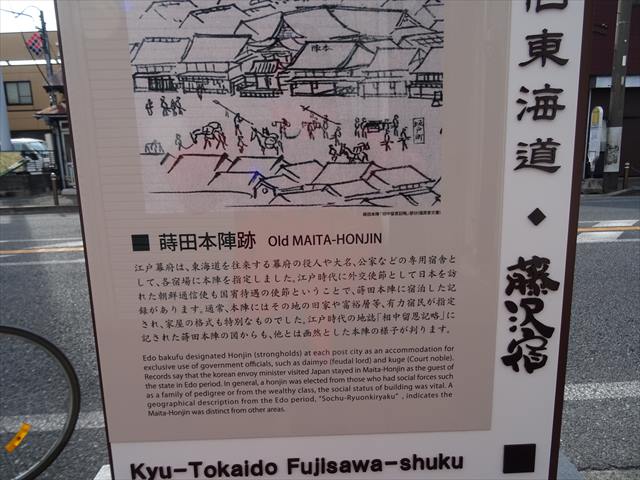 本陣
江戸方
蒔田本陣「旧中留恩記略」部分(福原家文書)
■ 蒔田本陣跡 Old MAITA-HONJIN
江戸幕府は、東海道を往来する幕府の役人や大名、公家などの専用宿舎と
して、各宿場に本陣を指定しました。江戸時代に外交使節として日本を訪
れた朝鮮通信使も国賓待遇の使節ということで、蒔田本陣に宿泊した記
録があります。通常、本陣にはその地の旧家や富裕層等、有力宿民が指定
され、家屋の格式も特別なものでした。江戸時代の地誌「相中留恩記略」に
記された蒔田本陣の図からも、他とは画然とした本陣の様子が判ります。
Edo bakufu designated Honjin (strongholds) at each post city as an accommodation for
exclusive use of government officials, such as daimyo (feudal lord) and kuge (Court noble).
Records say that the korean envoy minister visited Japan stayed in Maita-Honjin as the guest of
the state in Edo period. In general, a honjin was elected from those who had social forces such
as a family of pedigree or from the wealthy class, the social status of building was vital. A
geographical description from the Edo period, "Sochu-Ryuonkiryaku" , indicates the
Maita-Honjin was distinct from other areas.
旧東海道◆藤沢宿
Kyu-Tokaido Fujisawa-shuku